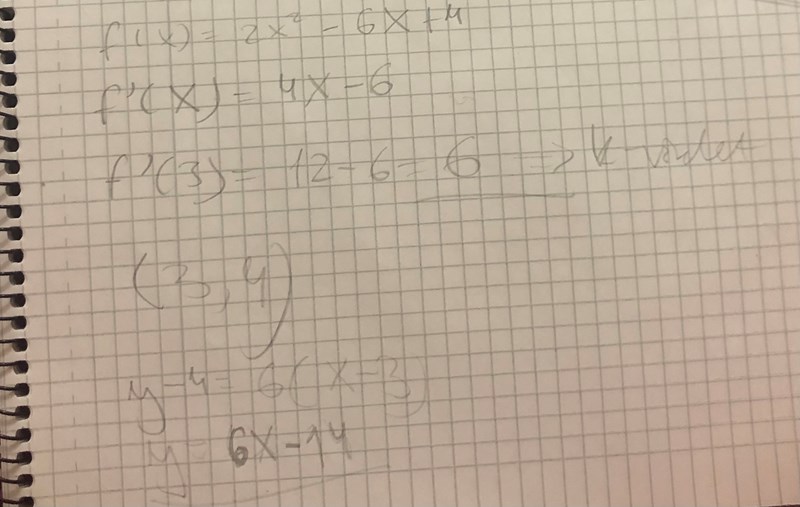 f(x) = 2x² - 6x+4
f'(x) = 4x-6
f'(3) = 12-6 = 6 => k-värdet
(3,4)
y-4 = 6(x-3)
y = 6x-14